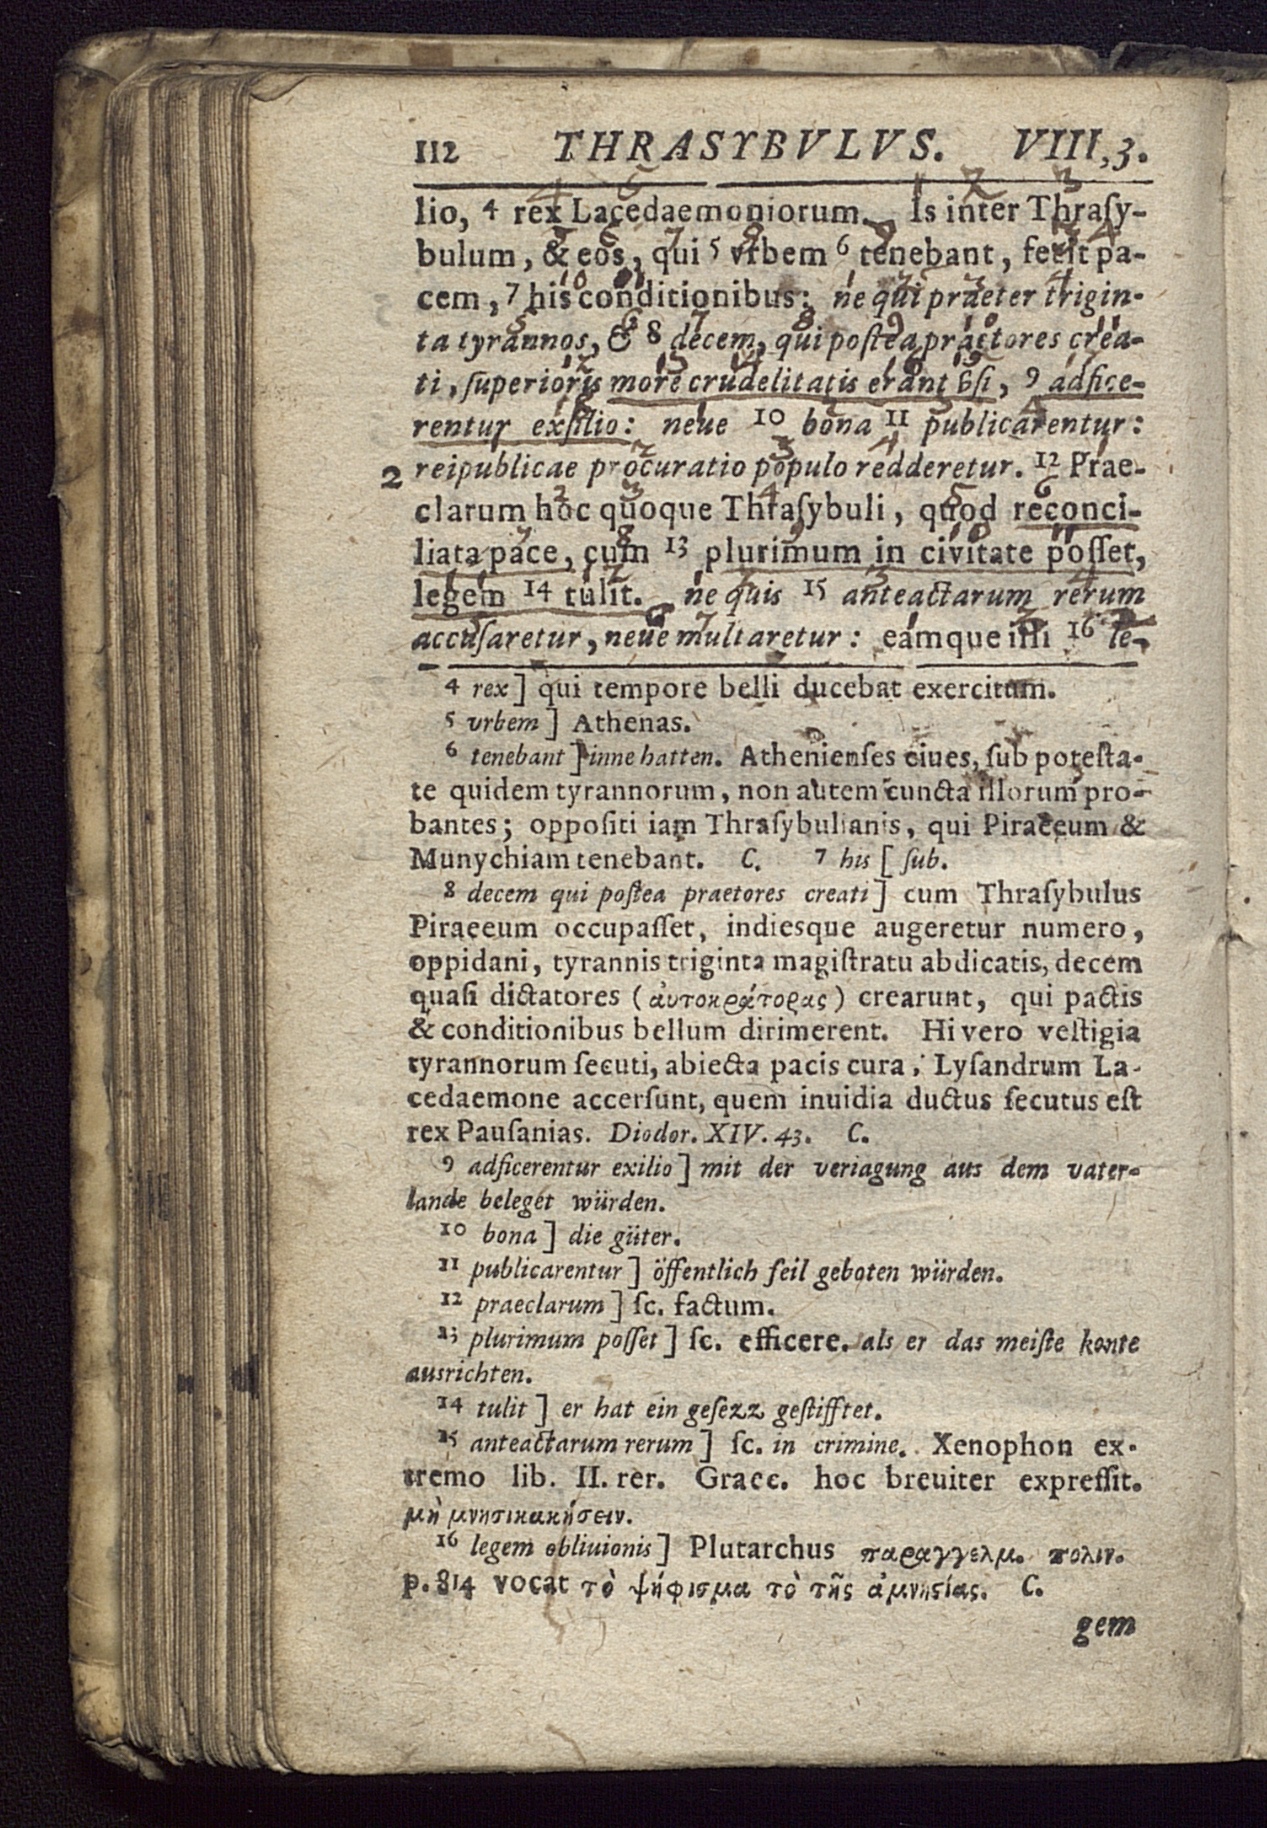 112 THRASYBVLVS. VIII,3.
lio, 4 rex Lacedaemoniorum. Is inter Thraſy-
bulum, & eos, qui 5 vrbem 6 tenebant, fecit pa-
cem, 7 his conditionibus: ne qui praeter trigin-
ta tyrannos, & 8 decem, qui poſtea praetores crea-
ti, ſuperioris more crudelitatis erant vſi, 9 adfice-
rentur exſilio: neue 10 bona 11 publicarentur:
2 reipublicae procuratio populo redderetur. 12 Prae-
clarum hoc quoque Thraſybuli, quod reconci-
liata pace, cum 13 plurimum in civitate poſſet,
legem 14 tulit. ne quis 15 anteactarum rerum
accuſaretur, neue multaretur: eamque illi 16 le-
4 rex] qui tempore belli ducebat exercitum.
5 vrbem] Athenas.
6 tenebant] inne hatten. Athenienſes ciues, ſub poteſta-
te quidem tyrannorum, non autem cuncta illorum pro-
bantes; oppoſiti iam Thraſybulianis, qui Piraeeum &
Munychiam tenebant. C. 7 his [ ſub.
8 decem qui poſtea praetores creati] cum Thraſybulus
Piraeeum occupaſſet, indiesque augeretur numero,
oppidani, tyrannis triginta magiſtratu abdicatis, decem
quaſi dictatores (ἀυτοκράτορας) crearunt, qui pactis
& conditionibus bellum dirimerent. Hi vero veſtigia
tyrannorum ſecuti, abiecta pacis cura, Lyſandrum La-
cedaemone accerſunt, quem inuidia ductus ſecutus eſt
rex Pauſanias. Diodor. XIV. 43. C.
9 adficerentur exilio] mit der veriagung aus dem vater-
lande beleget würden.
10 bona] die güter.
11 publicarentur] öffentlich feil geboten würden.
12 praeclarum] ſc. factum.
13 plurimum poſſet] ſc. efficere. als er das meiſte konte
ausrichten.
14 tulit] er hat ein geſezz geſtifftet.
15 anteactarum rerum] ſc. in crimine. Xenophon ex-
tremo lib. II. rer. Graec. hoc breuiter expreſſit.
μὴ μνησικακήσειν.
16 legem obliuionis] Plutarchus παραγγελμ. πολιν.
p. 814 vocat τὸ ψήφισμα τὸ τῆς ἀμνησίας. C.
gem